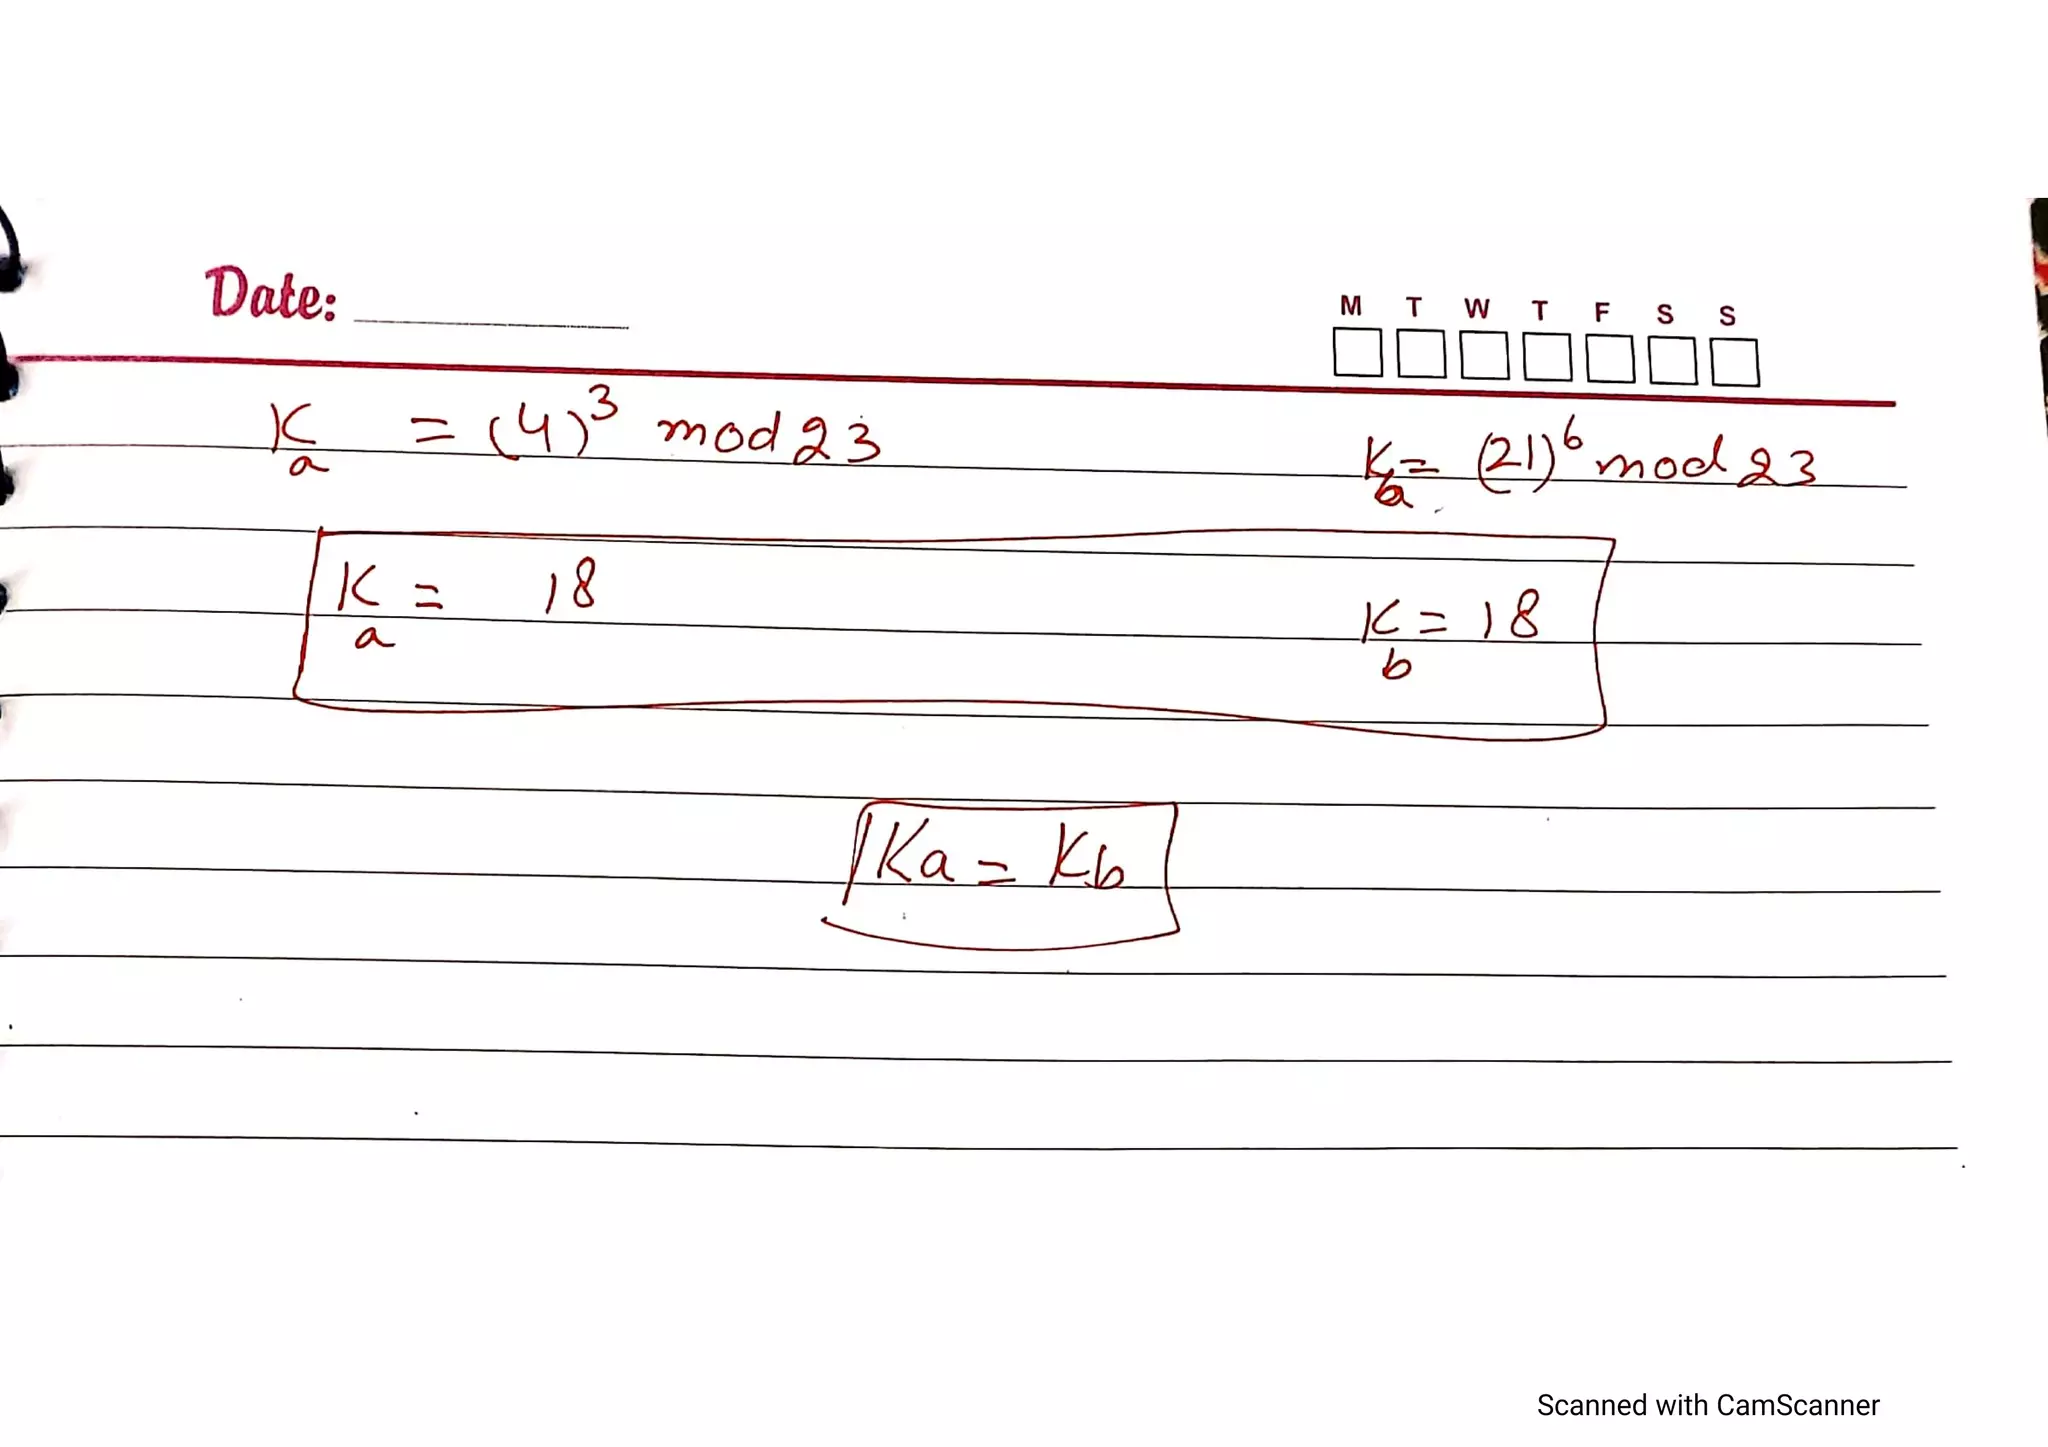 Date:
M T W T F S S
Ka = (4)³ mod 23
Kb = (21)⁶ mod 23
Ka = 18
Kb = 18
Ka = Kb
Scanned with CamScanner